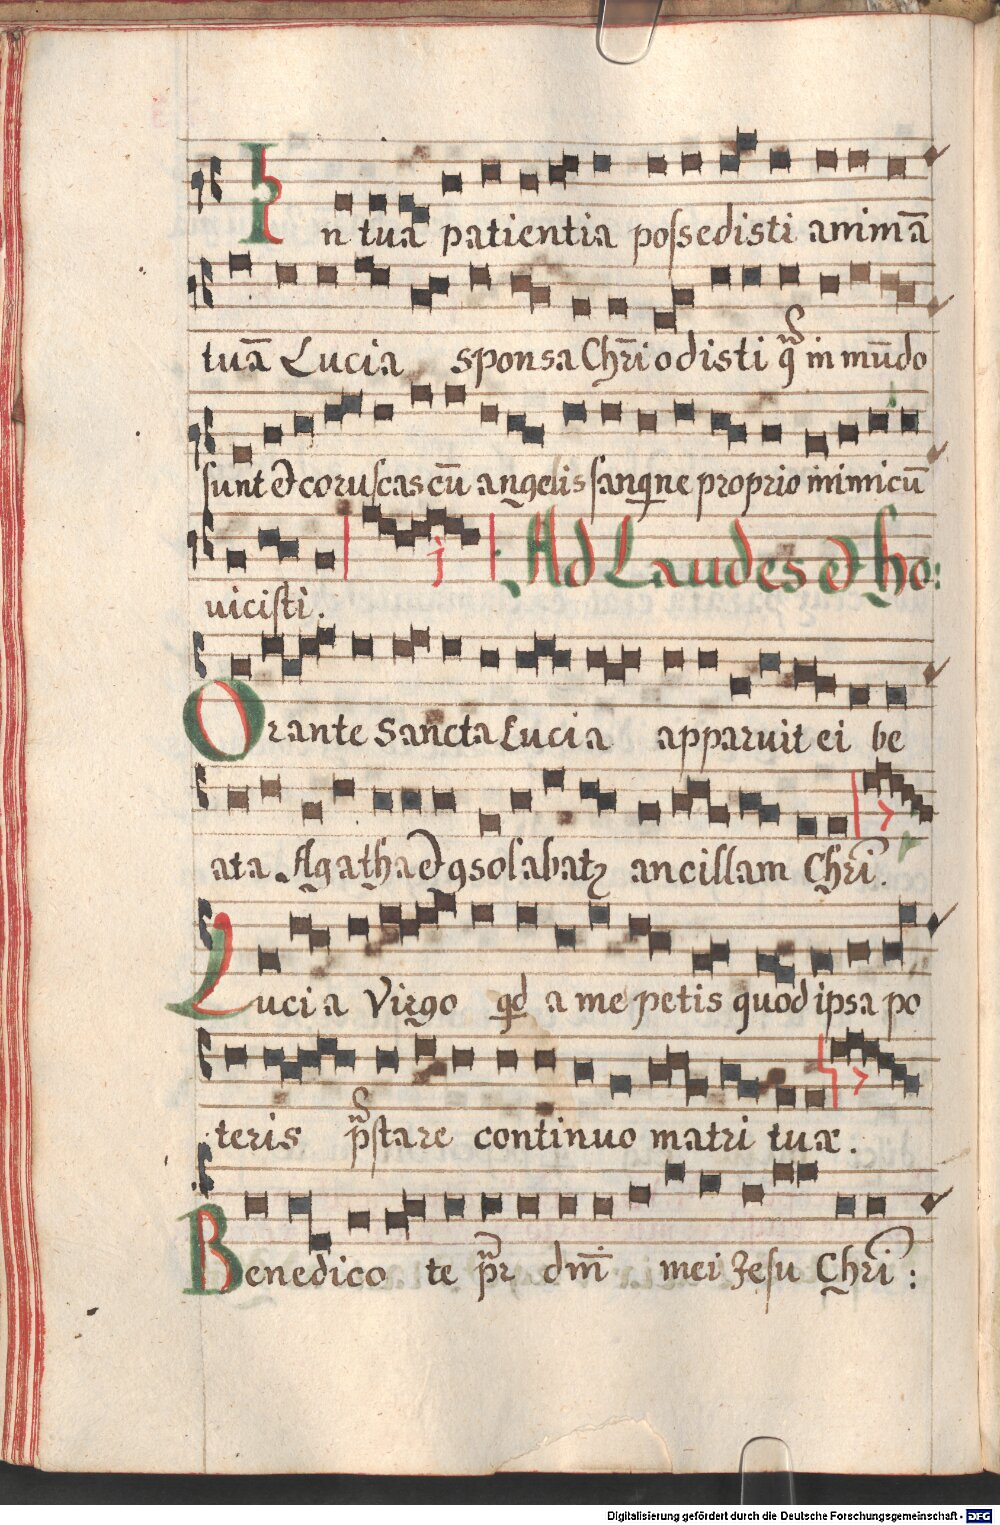 In tua patientia possedisti animā
tuā Lucia sponsa Chr̄i odisti q̄ in mūdo
sunt et coruscas cū angelis sanguine proprio inimicū
uicisti.
Ad Laudes et ho:
Orante Sancta Lucia apparuit ei be
ata Agatha et 9solabatꝛ ancillam Chr̄i.
Lucia Virgo qd a me petis quod ipsa po
teris p̄stare continuo matri tuæ.
Benedico te pr̄ dm̄ mei Jesu Chr̄i:
Digitalisierung gefördert durch die Deutsche Forschungsgemeinschaft - DFG